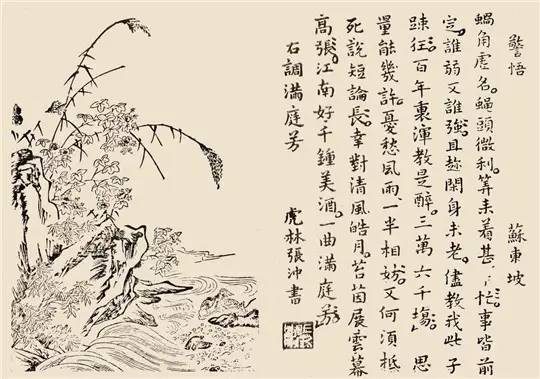 警悟 蘇東坡
蝸角虛名。蠅頭微利。筭来着甚忙。事皆前
定。誰弱又誰強。且趂閑身未老。儘教我些子
踈狂。百年裏渾教是醉。三萬六千塲。思
量能幾許。憂愁風雨。一半相妨。又何湏抵
死說短論長。幸對清風皓月。苔茵展雲幕
高張。江南好。千鍾美酒。一曲滿庭芳。
右調滿庭芳
虎林張沖書